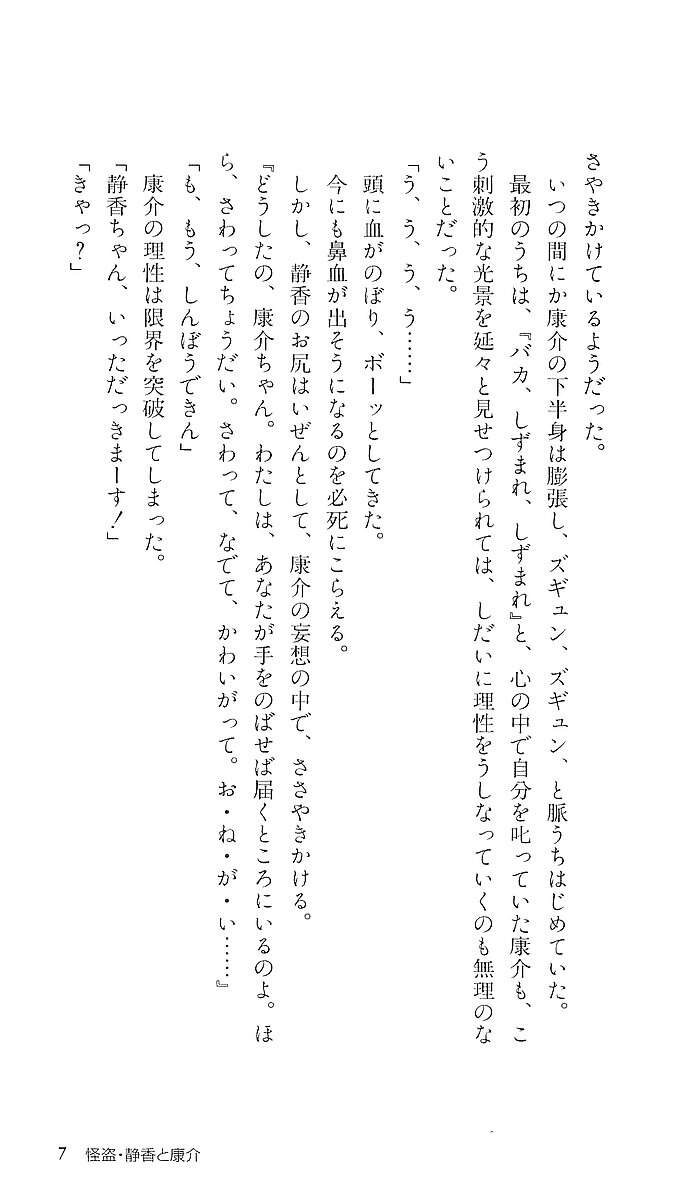 さやきかけているようだった。
　いつの間にか康介の下半身は膨張し、ズギュン、ズギュン、と脈うちはじめていた。
　最初のうちは、『バカ、しずまれ、しずまれ』と、心の中で自分を叱っていた康介も、こ
う刺激的な光景を延々と見せつけられては、しだいに理性をうしなっていくのも無理のな
いことだった。
「う、う、う、う……」
　頭に血がのぼり、ボーッとしてきた。
　今にも鼻血が出そうになるのを必死にこらえる。
　しかし、静香のお尻はいぜんとして、康介の妄想の中で、ささやきかける。
『どうしたの、康介ちゃん。わたしは、あなたが手をのばせば届くところにいるのよ。ほ
ら、さわってちょうだい。さわって、なでて、かわいがって。お・ね・が・い……』
「も、もう、しんぼうできん」
　康介の理性は限界を突破してしまった。
「静香ちゃん、いっただっきまーす！」
「きゃっ？」
7　怪盗・静香と康介